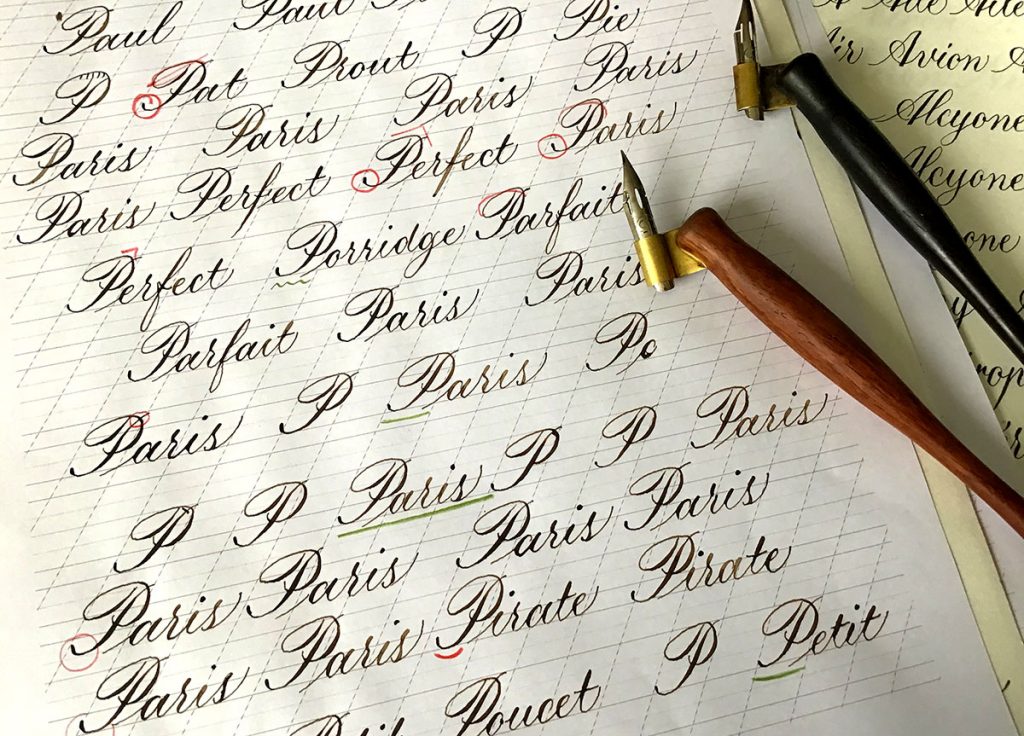 Paul Paul
P Pat Prout P Pie
Paris Paris Paris Paris
Paris Perfect Perfect Paris
Perfect Porridge Parfait
Parfait Paris Paris
Paris P Paris Po
P P Paris P P Paris
Paris Paris Paris Paris
Paris Paris Pirate Pirate
Poucet P Petit
Avion A
Alcyone
Alcyone